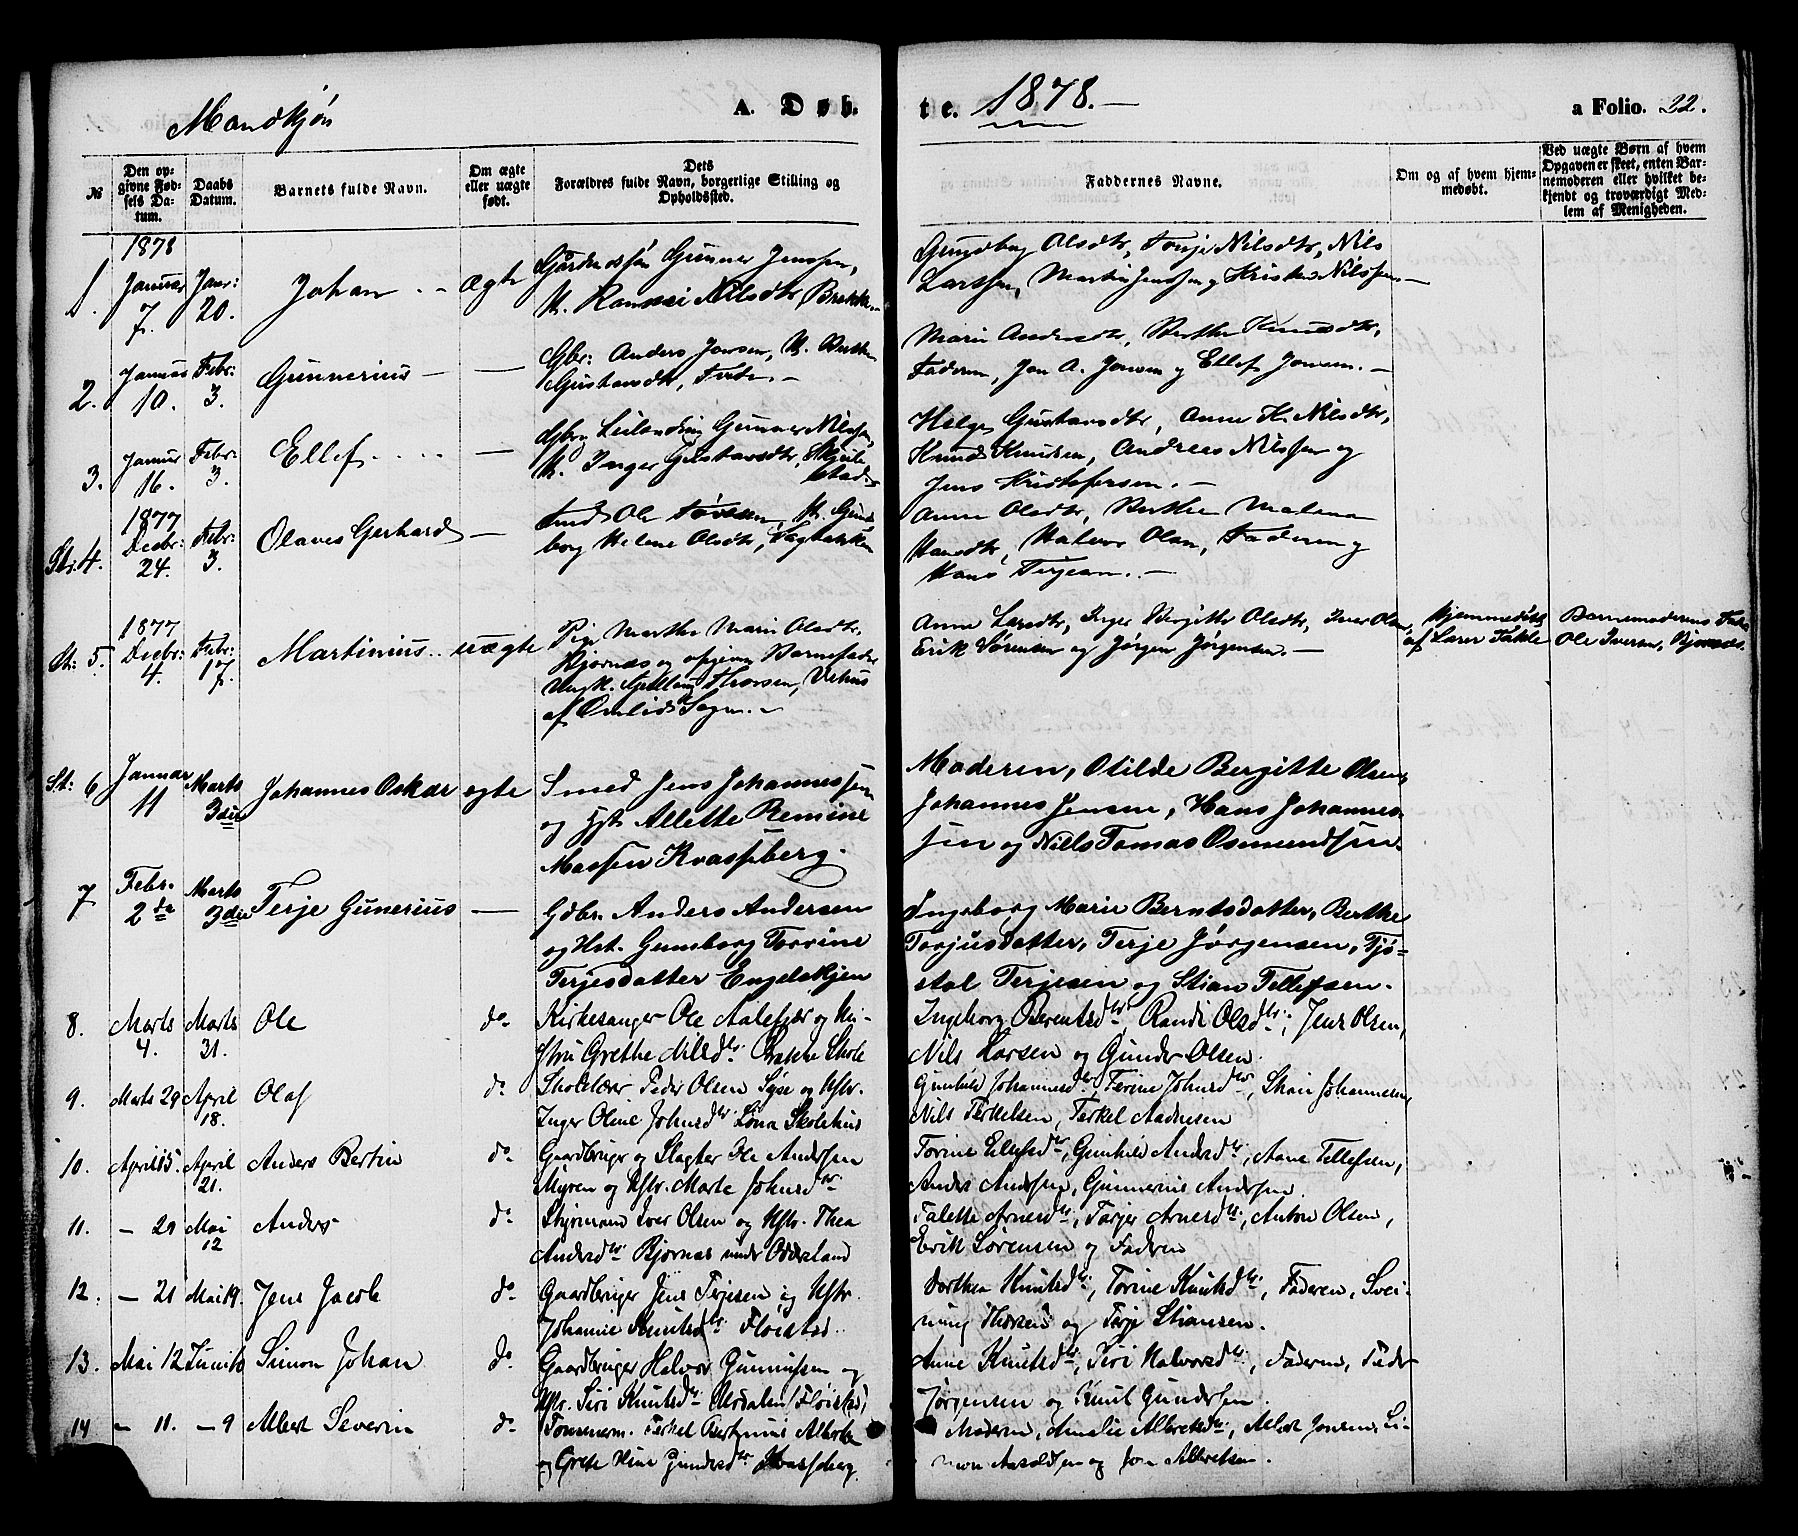 Mandkjøn
A. Døbte. 1878.-
a Folio. 22.
№
Den opgivne Fødsels Datum.
Daabs Datum.
Barnets fulde Navn.
Om ægte eller uægte født.
Dets Forældres fulde Navn, borgerlige Stilling og Opholdssted.
Faddernes Navne.
Om og af hvem hjemmedøbt.
Ved uægte Børn af hvem Opgaven er skeet, enten Barnemoderen eller hvilket bekjendt og troværdigt Medlem af Menigheden.
1878
1. Januar 7. Janr: 20. Johan ægte
Gunner Jenssen,
Nilsdtr Brekke
Olsdtr, Tonje Nilsdtr, Nils
Larssen, Martin Jenssen og Kristen Nilssen.-
2. Januar 10. Febr: 3. Gunnerius - -
Gbr: Anders Jensen, H. Berthe
Gustavsdtr, Tvede.-
Maren Andersdtr, Berthe Knudsdtr,
Faderen, Jon A. Jonsen og Ellef Jonsen.-
3. Januar 16. Febr: 3. Ellef -
Gunner Nilssen,
H. Inger Gustavsdtr, Skjulestad.
Helge Gustavsdtr, Anne K. Nilsdtr,
Knud Knudsen, Andreas Nilssen og
Jens Kristofersen.-
St. 4. 1877 Decbr: 24. Febr: 3. Olaves Gerhard -
Ole Tovsen, H. Gunborg Helene Olsdtr,
Anne Olsdtr, Berthe Malena
Hansdtr, Halvor Olsen, Faderen og
Hans Terjesen.-
St: 5. 1877 Decbr: 4. Febr: 17. Martinius uægte
Pige Marthe Marie Olsdtr.
Bjornæs og opgiven Barnefader
Ungk. Thorsen,
af Omlids Sogn.-
Anne Larsdtr, Inger Birgitte Olsdtr, Iver Olsen,
Erik Sørensen og Jørgen Jørgensen.-
Hjemmedøbt
af Larer Takle
Barnemoderens Fader
Ole Iversen, Bjornæs.
St: 6 Januar 11 Marts 3die Johannes Oskar ægte
Smed Jens Johannessen
og Hst. Allette Remine
Massen Kvasseberg.
Moderen, Otilde Bergitte Olsen,
Johannes Jensen, Hans Johannessen
og Niels Tomas Osmundsen.
7 Febr. 2de Marts 3die Terje Gunerius -
Gdbr. Anders Andersen
og Hst. Gunborg Torrine
Terjesdatter Engelskjen
Ingeborg Marie Berntsdatter, Berthe
Torjusdatter, Terje Jørgensen, Tjøstol
Terjesen og Stian Tellefsen.
8. Marts 4. Marts 31. Ole do
Kirkesanger Ole Aalefjær og Hustru
Grethe Nilsdtr. Brække Skole
Ingeborg Berentsdtr, Randi Olsdtr., Jens Olsen,
Nils Larsen og Gunder Olsen.
9. Marts 29 April 18. Olaf do
Skolelærer Peder Olsen Syse og Hstr.
Inger Oline Johnsdtr. Løna Skolehus
Gunhild Johannesdtr, Terine Johnsdtr, Johannesen,
Nils Terkelsen, Terkel Aadnesen
10. April 15. April 21. Anders Bertin do
Gaardbruger og Slagter Ole Andersen
Myren og Hstr. Marte Johnsdtr.
Torine Ellefsdtr, Gunhild Andersdtr., Aane Tellefsen,
Anders Andersen, Gunnerius Andersen.
11. - 29 Mai 12 Anders do
Styrmand Iver Olsen og Hstr. Thea
Andersdtr. Bjornæs under Odderstand
Talette Arnesdtr., Torjer Arnesdtr., Anton Olsen,
Erik Sørensen og Faderen
12. - 21 Mai 19. Jens Jacob do
Gaardbruger Jens Terjesen og Hstr.
Johanne Knutsdtr Fløistad.
Dorthea Knutsdtr., Torine Knutsdtr., Faderen, Sveinung
Thorsen og Terje Stiansen.
13. Mai 12 Juni 10 Simon Johan do
Gaardbruger Halvor Gunnufsen og
Hstr. Siri Knutsdtr (Fløistad)
Anne Knutsdtr, Siri Halvorsdtr., Faderen, Peder
Jørgensen og Knut Gundersen.
14 - 11. - 9 Albert Severin do
Tømmerm. Terkel Bertinius Albertsen
og Grete Gundersdtr Kvasseberg.
Moderen, Amalie Albretsdtr., Albert Jonsen, Simon
Aasoldsen og Jon Albretsen.